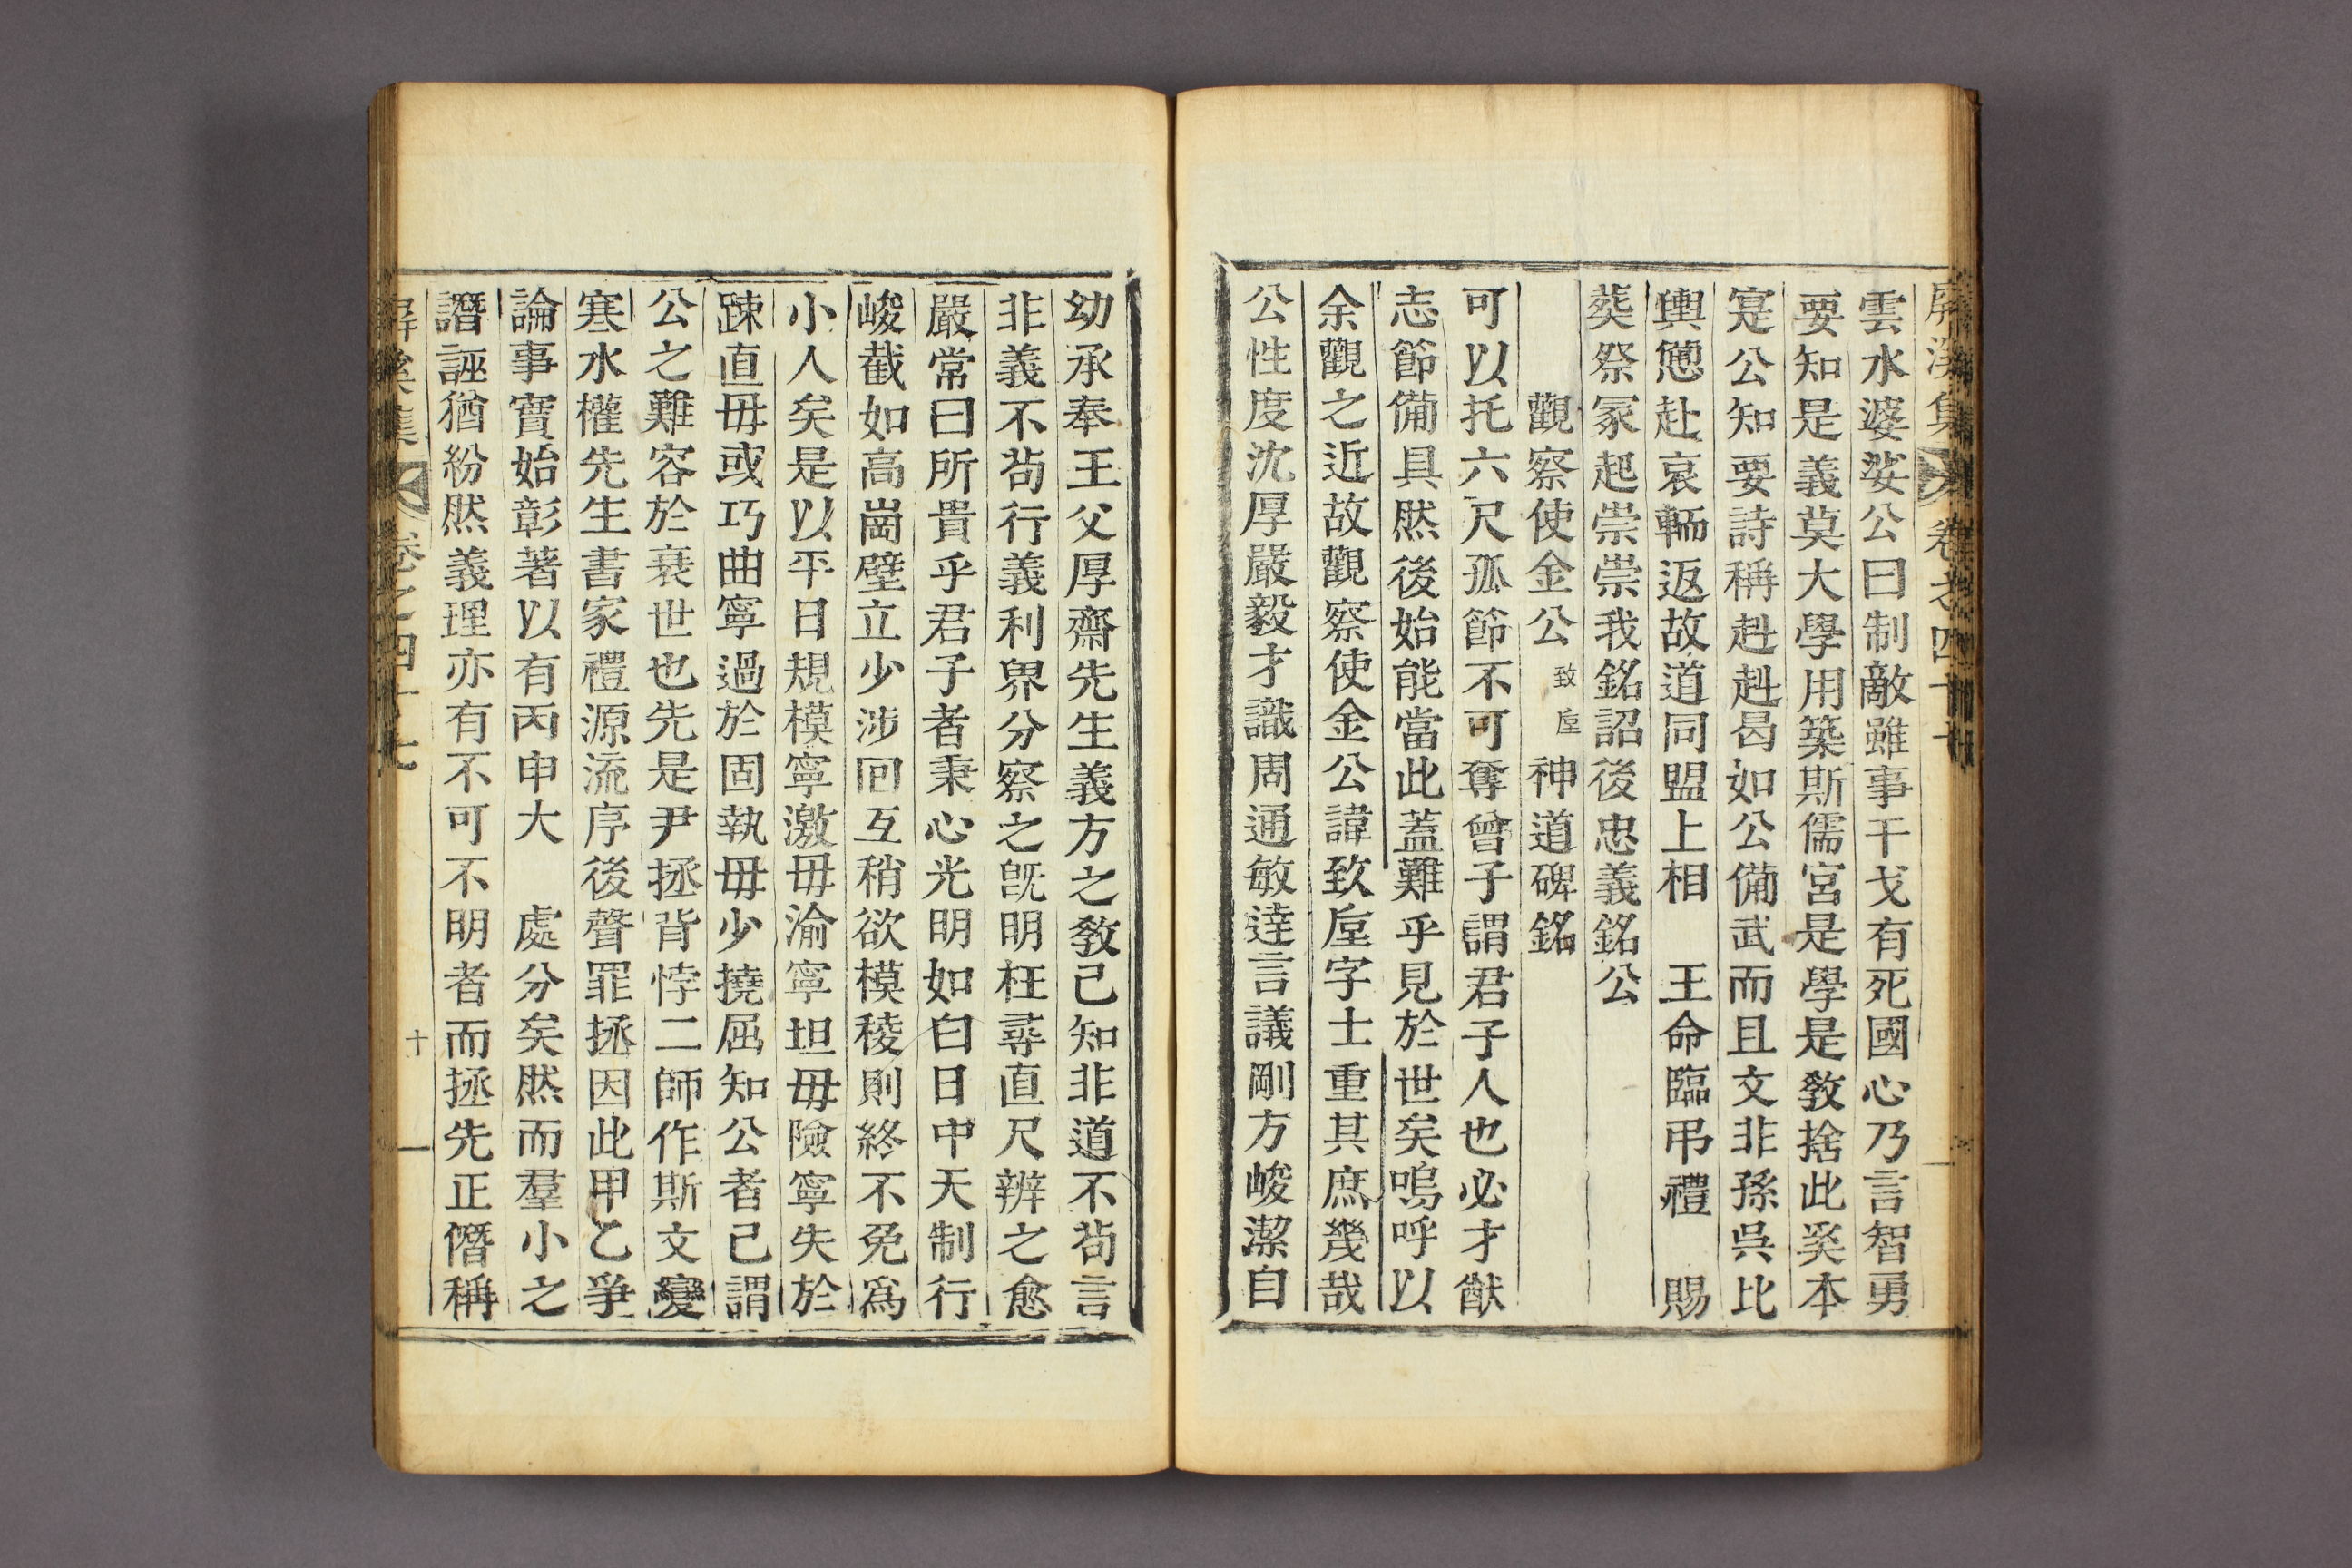 屛溪集 卷之四十七
雲水婆娑公曰制敵雖事干戈有死國心乃言智勇
要知是義莫大學用築斯儒宮是學是敎捨此奚本
寔公知要詩稱赳赳曷如公備武而且文非孫吳比
輿憊赴哀輀返故道同盟上相 王命臨弔禮 賜
葬祭冢起崇崇我銘詔後忠義銘公
觀察使金公致垕神道碑銘
可以托六尺孤節不可奪曾子謂君子人也必才猷
志節備具然後始能當此蓋難乎見於世矣嗚呼以
余觀之近故觀察使金公諱致垕字士重其庶幾哉
公性度沈厚嚴毅才識周通敏達言議剛方峻潔自
幼承奉王父厚齋先生義方之敎己知非道不茍言
非義不茍行義利界分察之旣明枉尋直尺辨之愈
嚴常曰所貴乎君子者秉心光明如白日中天制行
峻截如高崗壁立少涉回互稍欲模稜則終不免爲
小人矣是以平日規模寧激毋渝寧坦毋險寧失於
踈直毋或巧曲寧過於固執毋少撓屈知公者己謂
公之難容於衰世也先是尹拯背悖二師作斯文變
寒水權先生書家禮源流序後聲罪拯因此甲乙爭
論事實始彰著以有丙申大 處分矣然而羣小之
譖誣猶紛然義理亦有不可不明者而拯先正僭稱
屛溪集 卷之四十七 十一